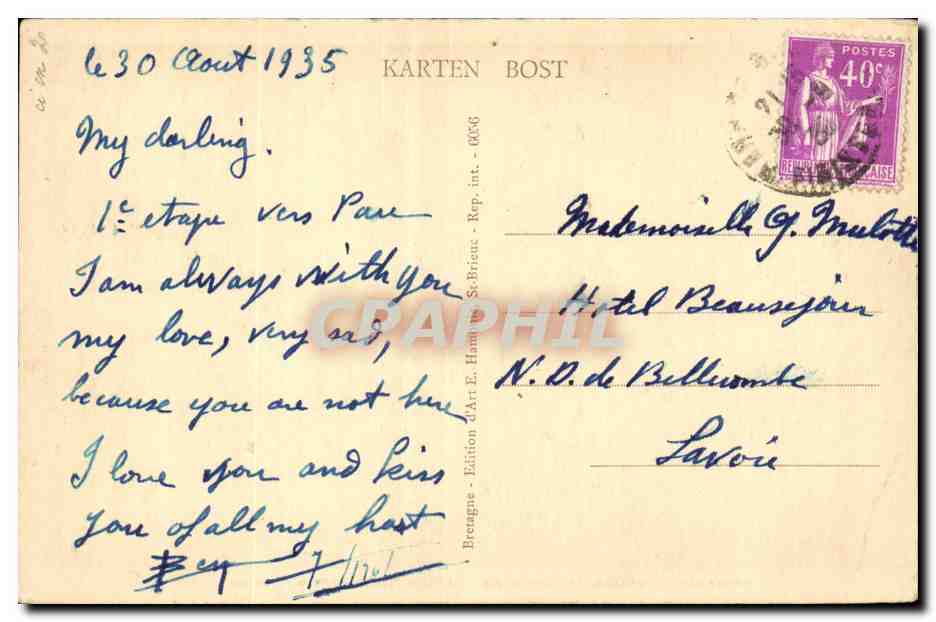 le 30 Aout 1935
KARTEN BOST
My darling.
1e etape vers Pau
I am always with you
my love, very sad,
because you are not here
I love you and kiss
you of all my hart
Bretagne - Edition d'Art E. Hamonic St-Brieuc - Rep. int. - 6056
POSTES
40c
Mademoiselle G. Mulotte
Hotel Beausejour
N. D. de Bellecombe
Savoie
CPAPHIL